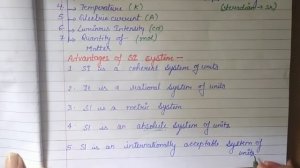 4. → Temperature (K) (steradian → sr)
5 → Electric current (A)
6 → Luminous Intensity (cd)
7 → Quantity of (mol)
Matter
Advantages of SI system -
1 SI is a coherent system of units
2. It is a rational system of units
3. SI is a metric system
4. SI is an absolute system of units
5 SI is an internationally acceptable system of
units